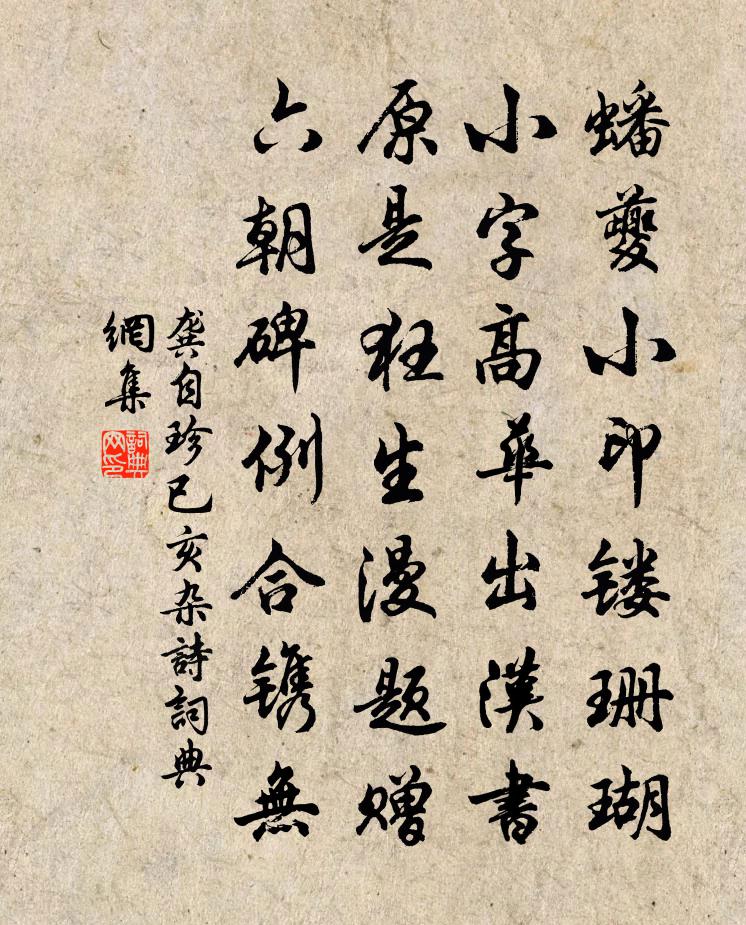 蟠夔小印镂珊瑚
小字高華出漢書
原是狂生漫题赠
六朝碑例合镌無
龔自珍己亥杂詩詞典
網集
詞典网印